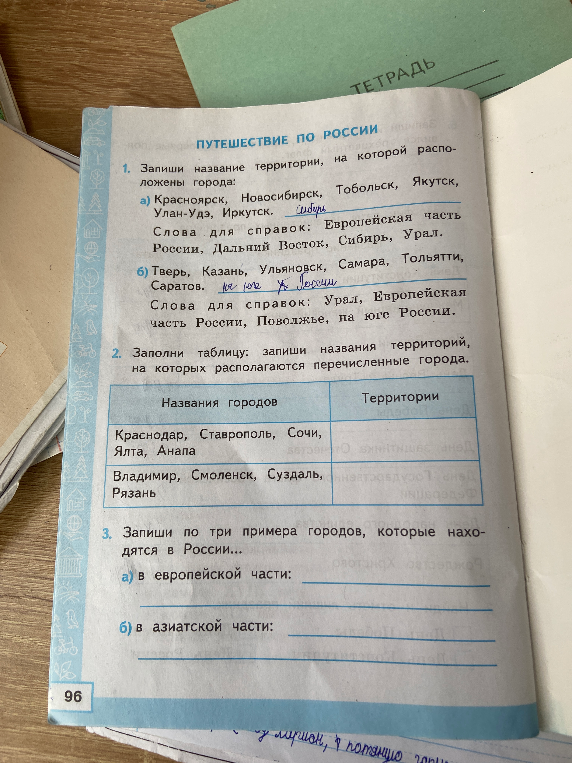 ТЕТРАДЬ
ПУТЕШЕСТВИЕ ПО РОССИИ
1. Запиши название территории, на которой распо-
ложены города:
а) Красноярск, Новосибирск, Тобольск, Якутск,
Улан-Удэ, Иркутск. сибирь
Слова для справок: Европейская часть
России, Дальний Восток, Сибирь, Урал.
б) Тверь, Казань, Ульяновск, Самара, Тольятти,
Саратов. на юге России
Слова для справок: Урал, Европейская
часть России, Поволжье, на юге России.
2. Заполни таблицу: запиши названия территорий,
на которых располагаются перечисленные города.
Названия городов Территории
Краснодар, Ставрополь, Сочи,
Ялта, Анапа
Владимир, Смоленск, Суздаль,
Рязань
3. Запиши по три примера городов, которые нахо-
дятся в России...
а) в европейской части:
б) в азиатской части:
96